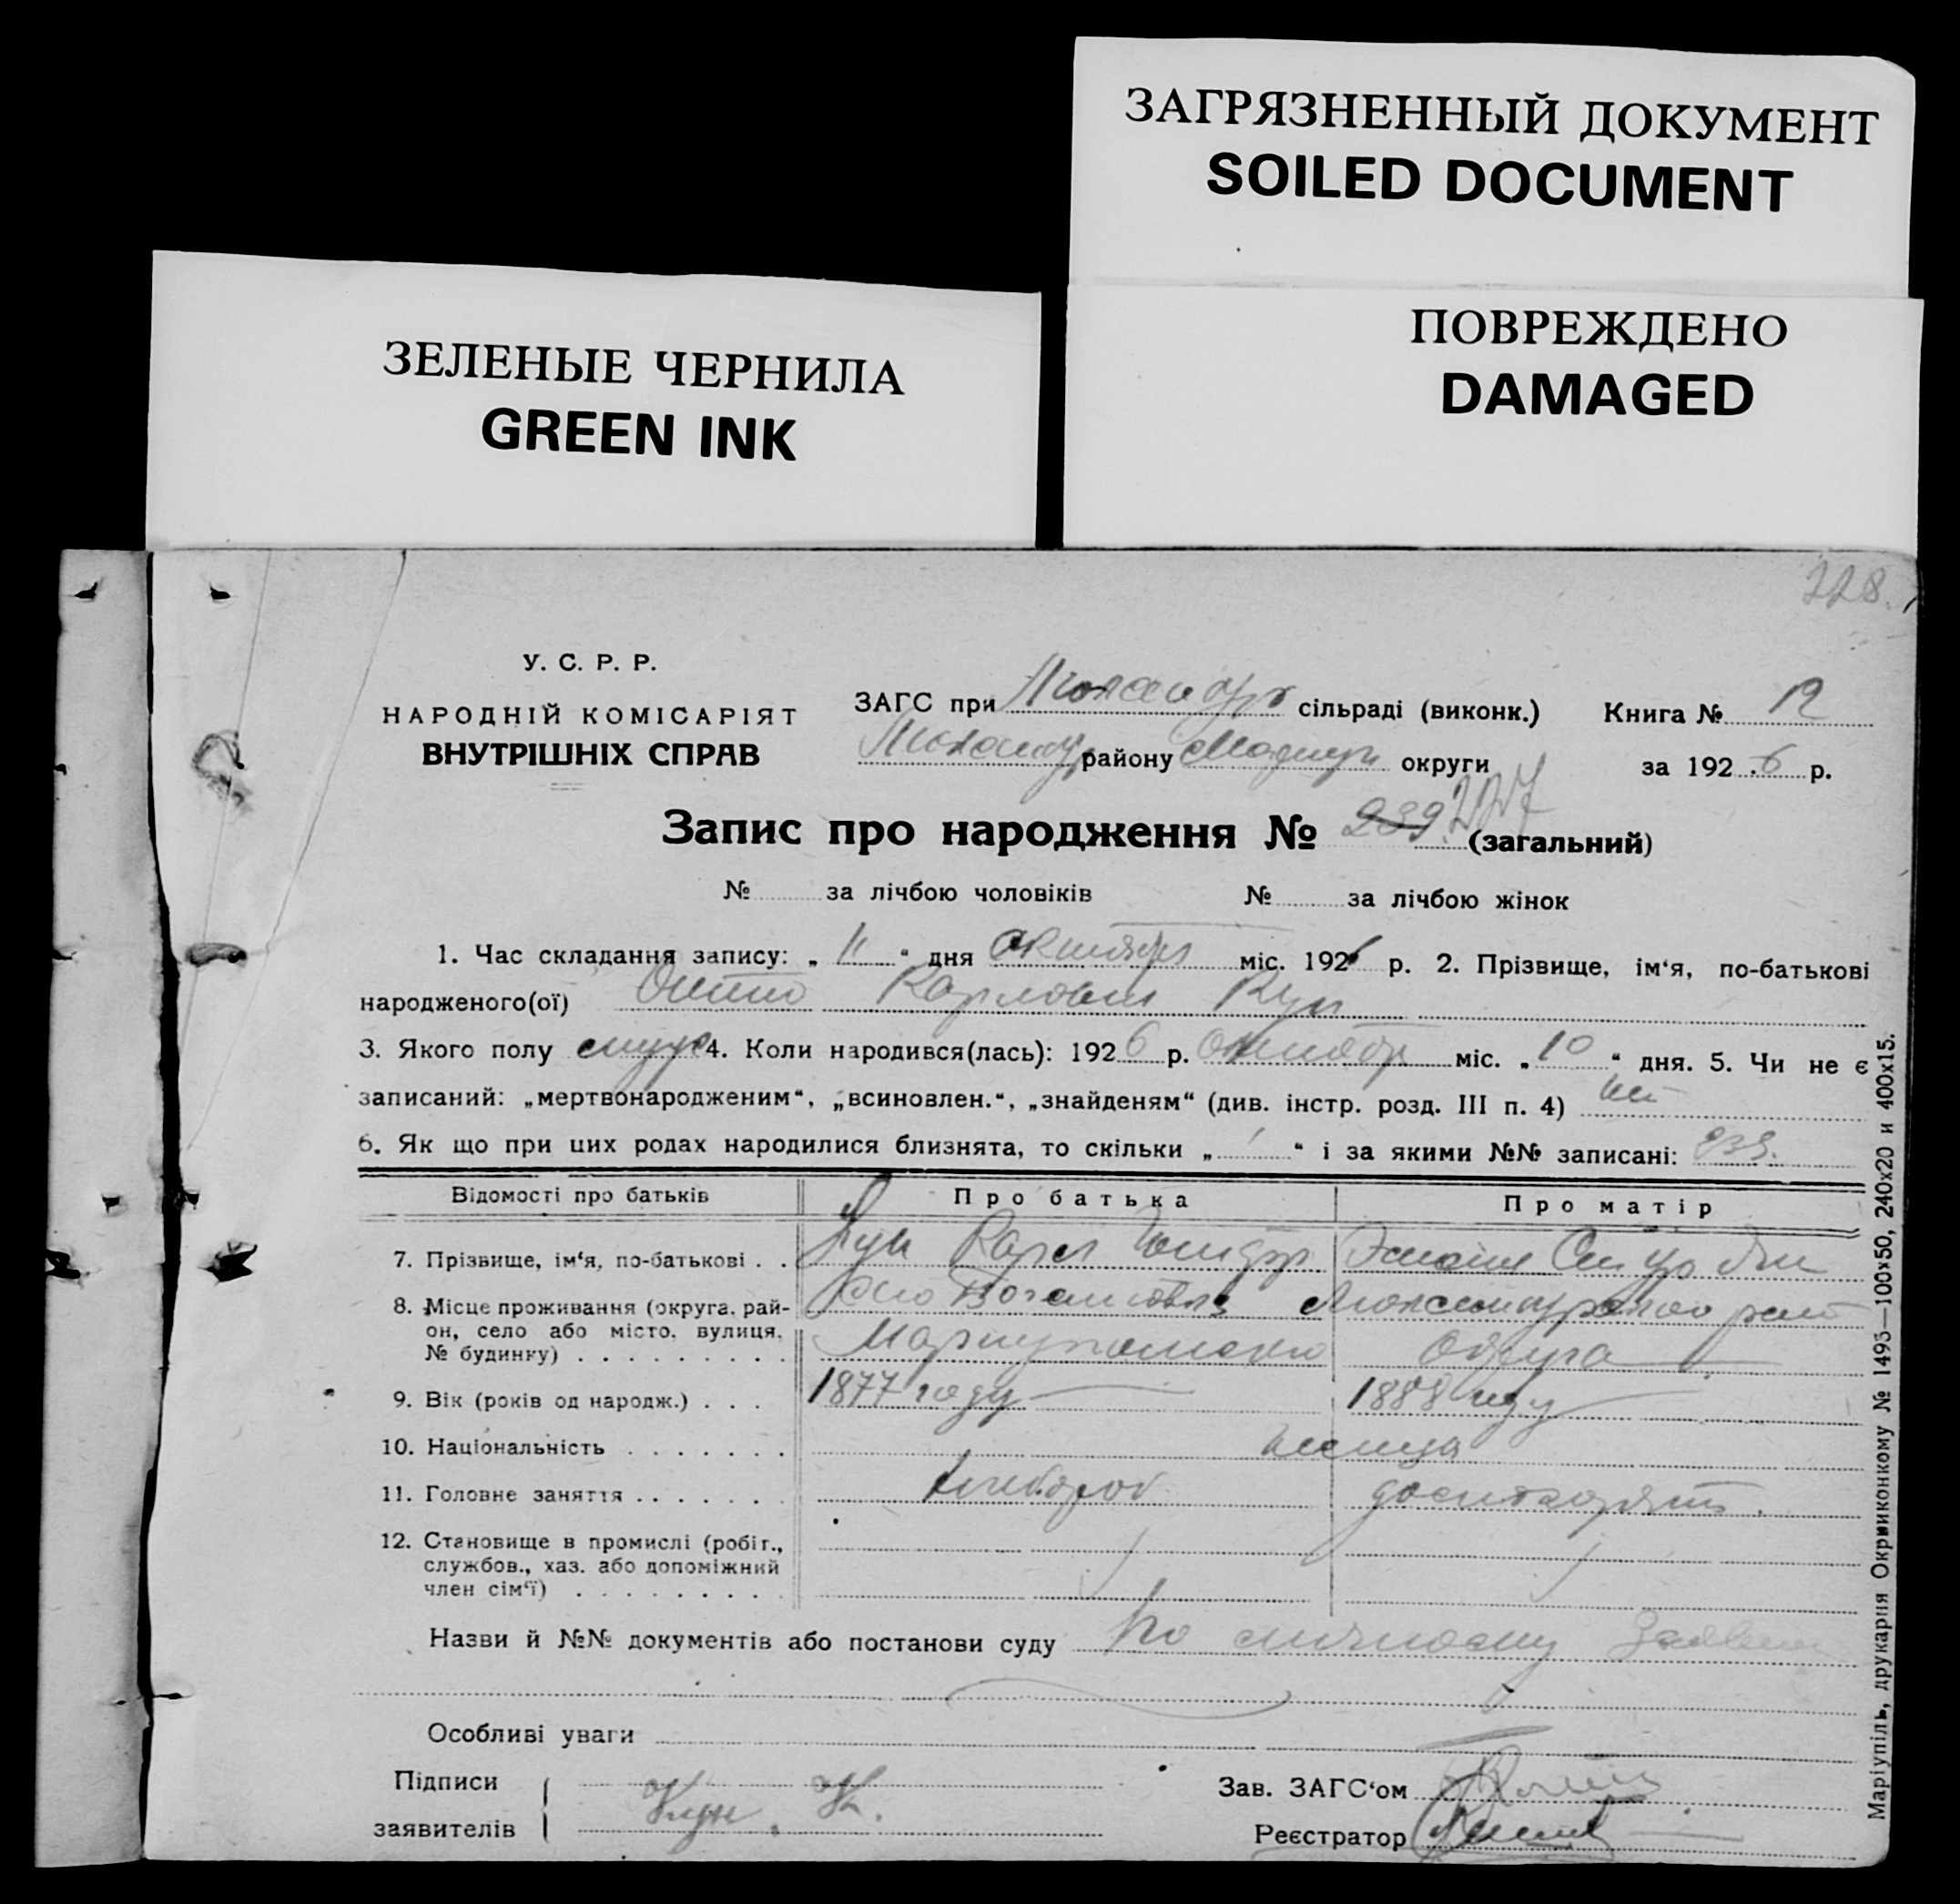 ЗАГРЯЗНЕННЫЙ ДОКУМЕНТ
SOILED DOCUMENT
ЗЕЛЕНЫЕ ЧЕРНИЛА
GREEN INK
ПОВРЕЖДЕНО
DAMAGED
228.
У. С. Р. Р.
НАРОДНІЙ КОМІСАРІЯТ
ВНУТРІШНІХ СПРАВ
ЗАГС при сільраді (виконк.) Книга № 12
району округи за 1926 р.
Запис про народження № 239 227 (загальний)
№ за лічбою чоловіків № за лічбою жінок
1. Час складання запису: „ 11 “ дня Октября міс. 1926 р. 2. Прізвище, ім‘я, по-батькові
народженого(ої) Отто Карлович Кун
3. Якого полу 4. Коли народився(лась): 1926 р. Октябр міс. „ 10 “ дня. 5. Чи не є
записаний: „мертвонародженим“, „всиновлен.“, „знайденям“ (див. інстр. розд. III п. 4)
6. Як що при цих родах народилися близнята, то скільки „ “ і за якими №№ записані:
Відомості про батьків Про батька Про матір
7. Прізвище, ім‘я, по-батькові . . Кун Карл
8. Місце проживання (округа, рай-
он, село або місто, вулиця,
№ будинку) . . . . . . . . . Округа
9. Вік (років од народж.) . . . 1877 году 1888 году
10. Національність . . . . . . . немца
11. Головне заняття . . . . . . хлебороб
12. Становище в промислі (робіт.,
службов., хаз. або допоміжний
член сім‘ї) . . . . . . . . .
Назви й №№ документів або постанови суду По личному
Особливі уваги
Підписи
заявителів Кун. К.
Зав. ЗАГС‘ом
Реєстратор
Маріупіль, друкарня Окрвиконкому № 1495—100х50, 240х20 и 400х15.